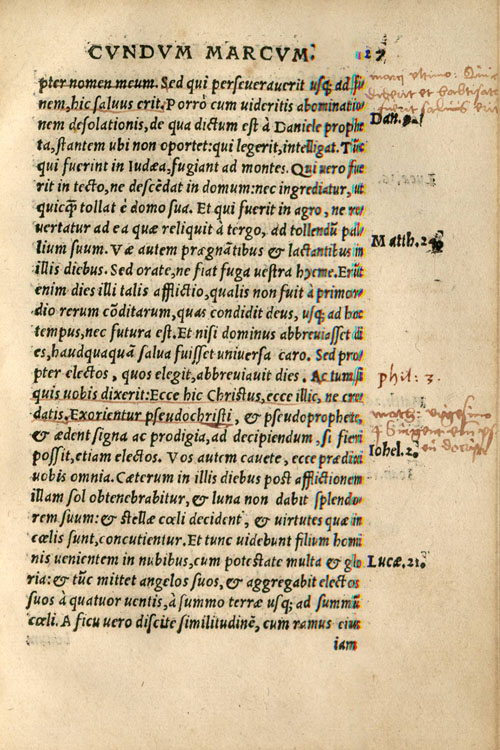 CVNDVM MARCVM. 27
pter nomen meum. Sed qui perseuerauerit usq; ad fi
nem, hic saluus erit. Porrò cum uideritis abominatio
nem desolationis, de qua dictum est à Daniele prophe
Dan. 9.
ta, stantem ubi non oportet: qui legerit, intelligat. Tũc
qui fuerint in Iudæa, fugiant ad montes. Qui uero fue
rit in tecto, ne descẽdat in domum: nec ingrediatur, ut
quicq̃ tollat è domo sua. Et qui fuerit in agro, ne re
uertatur ad ea quæ reliquit à tergo, ad tollendũ pal
Matth. 24.
lium suum. Væ autem prægnãtibus & lactantibus in
illis diebus. Sed orate, ne fiat fuga uestra hyeme. Erũt
enim dies illi talis afflictio, qualis non fuit à primor
dio rerum cõditarum, quas condidit deus, usq; ad hoc
tempus, nec futura est. Et nisi dominus abbreuiasset di
es, haudquaquã salua fuisset uniuersa caro. Sed pro
pter electos, quos elegit, abbreuiauit dies. Ac tum si
phil: 3.
quis uobis dixerit: Ecce hic Christus, ecce illic, ne cre
datis. Exorientur pseudochristi, & pseudoprophetæ,
& ædent signa ac prodigia, ad decipiendum, si fieri
possit, etiam electos. Vos autem cauete, ecce prædixi
Iohel. 2.
uobis omnia. Cæterum in illis diebus post afflictionem
illam sol obtenebrabitur, & luna non dabit splendo
rem suum: & stellæ cœli decident, & uirtutes quæ in
cœlis sunt, concutientur. Et tunc uidebunt filium homi
nis uenientem in nubibus, cum potestate multa & glo
Lucæ. 21.
ria: & tũc mittet angelos suos, & aggregabit electos
suos à quatuor uentis, à summo terræ usq; ad summũ
cœli. A ficu uero discite similitudinẽ, cum ramus eius
iam